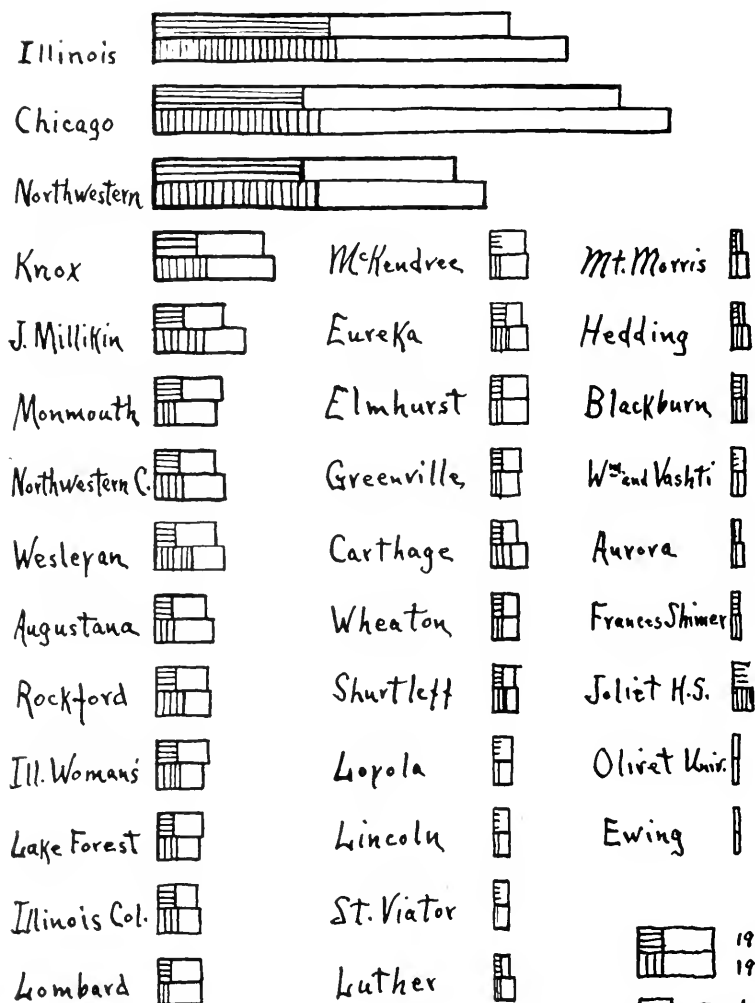 Illinois
Chicago
Northwestern
Knox
J. Millikin
Monmouth
Northwestern C.
Wesleyan
Augustana
Rockford
Ill. Woman's
Lake Forest
Illinois Col.
Lombard
McKendree
Eureka
Elmhurst
Greenville
Carthage
Wheaton
Shurtleff
Loyola
Lincoln
St. Viator
Luther
Mt. Morris
Hedding
Blackburn
Wm. and Vashti
Aurora
Frances Shimer
Joliet H.S.
Olivet Univ.
Ewing
19
19